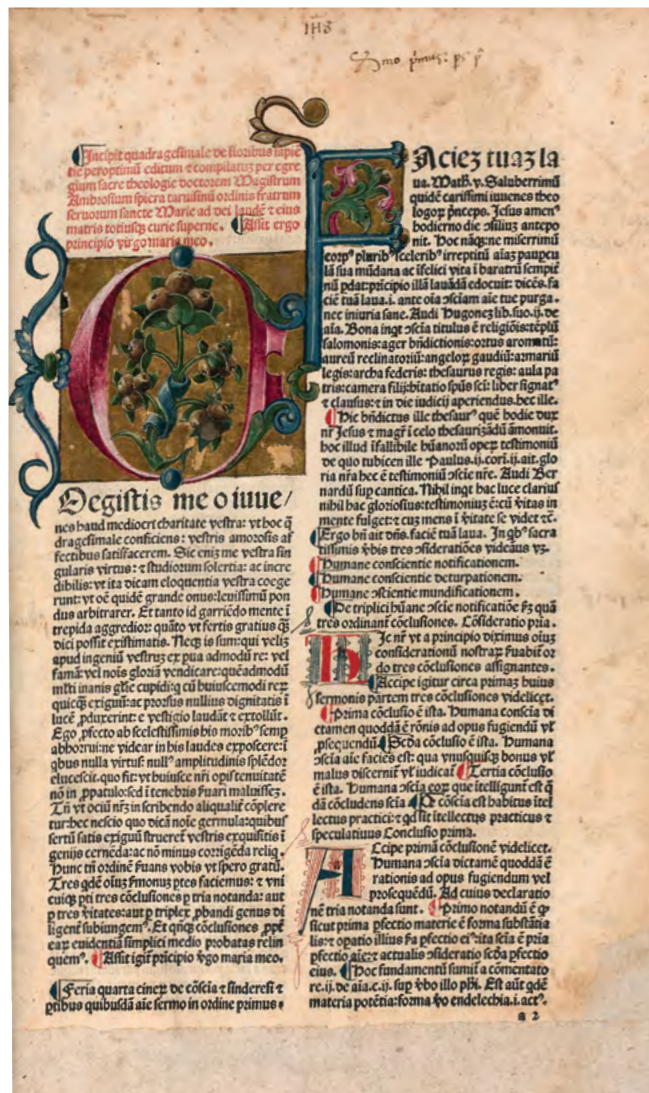 IHS
Incipit quadragesimale de floribus sapiē
tie peroptimū editum ⁊ compilatuꝫ per egre
gium sacre theologie doctorem Magistrum
Ambrosium spiera taruisinū ordinis fratrum
seruorum sancte Marie ad dei laudē ⁊ eius
matris totiusqꝫ curie superne. Assit ergo
principio virgo maria meo.
OEgistis me o iuue/
nes haud mediocri charitate vestra: vt hoc q̄
dragesimale conficiens: vestris amorosis af
fectibus satisfacerem. Sic eniꝫ me vestra sin
gularis virtus: ⁊ studiorum solertia: ac incre
dibilis: vt ita dicam eloquentia vestra coege
runt: vt oē quidē grande onus: leuissimū pon
dus arbitrarer. Et tanto id garriēdo mente ī
trepida aggredior: quāto vt fertis gratius qͥꝫ
dici possit existimatis. Neqꝫ is sum: qui veliꝫ
apud ingeniū vestruꝫ ex pua admodū re: vel
famā: vel nois gloriā vendicare: quēadmodū
mlti inanis gl̄ie cupidi: q cū huiuscemodi reꝝ
quicqꝫ exiguū: ac prorsus nullius dignitatis ī
lucē ꝓduxerint: e vestigio laudāt ⁊ extollūt.
Ego ꝓfecto ab scelestissimis his moribꝰ semꝑ
abhorrui: ne videar in his laudes exposcere: ī
qbus nulla virtus: nullꝰ amplitudinis splēdor
elucescit. quo fit: vt huiusce nr̄i opis tenuitatē
nō in ꝓpatulo: sed ī tenebris fuari maluisseꝫ.
Tn̄ vt ociū nr̄ꝫ in scribendo aliqualiꝉ cōplere
tur: hec nescio quo dicā noīe germula: quibus
sertū satis exiguū strueret vestris exquisitis ī
genijs cernēda: ac nō minus corrigēda reliq.
Hunc tn̄ ordinē fuans vobis vt spero gratū.
Tres qdē oīus ẜmonus ptes faciemus: ⁊ vni
cuiqꝫ pti tres cōclusiones ꝑ tria notanda: aut
ꝑ tres v̄itates: aut ꝑ triplex ꝓbandi genus di
ligent subiungemꝰ. Et qnqꝫ cōclusiones ꝓpt̄
eaꝝ euidentiā simplici medio probatas relin
quemꝰ. Assit igit̄ pricipio v̄go maria meo.
Feria quarta cineꝝ de cōscīa ⁊ sinderesi ⁊
ptibus quibusdā aīe sermo in ordine primus.
FAcieꝫ tuaꝫ la
ua. Math. v. Saluberrimū
quidē carissimi iuuenes theo
logoꝝ pnceps. Jesus amenꝰ
hodierno die ꝯsiliuꝫ antepo
nit. Hoc nāqꝫ: ne miserrimū
corpꝰ pluribꝰ sceleribꝰ irreptitū aīaꝫ paupcu
lā sua mūdana ac īfelici vita ī baratrū sempīt̄
nū pdat: pricipio illā lauādā edocuit: dicēs. fa
ciē tuā laua. i. ante oīa ꝯsciam aīe tue purga.
nec iniuria sane. Audi Hugoneꝫ lib. suo. ij. de
aīa. Bona inqt ꝯscīa titulus ē religiōis: tēplū
salomonis: ager bn̄dictionis: ortus aromatū:
aureū reclinatoriū: angeloꝝ gaudiū: armariū
legis: archa federis: thesaurus regis: aula pa
tris: camera filij: hītatio spūs sci: liber signatꝰ
⁊ clausus: ⁊ in die iudicij aperiendus. hec ille.
Hic bn̄dictus ille thesaurꝰ quē hodie dux
nr̄ Jesus ⁊ magr̄ ī celo thesauriꝫādū āmonuit.
hoc illud īfallibile hūanoꝝ opeꝝ testimoniū
de quo tubicen ille Paulus. ij. cori. ij. ait. glo
ria nr̄a hec ē testimoniū ꝯscīe nr̄e. Audi Ber
nardū sup cantica. Nihil inqt hac luce clarius
nihil hac gloriosius: testimoniuꝫ ē: cū v̄itas in
mente fulget: ⁊ cuꝫ mens ī v̄itate se videt ⁊c̄.
Ergo bn̄ ait dn̄s. faciē tuā laua. In qbꝰ sacra
tissimis v̄bis tres ꝯsideratiōes videāus vꝫ.
Humane conscientie notificationem.
Humane conscientie deturpationem.
Humane ꝯscientie mundificationem.
De triplici hūane ꝯscīe notificatiōe fꝫ quā
tres ordinant̄ cōclusiones. Cōsideratio pria.
HIc nr̄ vt a principio diximus oiuꝫ
considerationū nostraꝝ fuabit̄ or
do tres cōclusiones assignantes.
Accipe igitur circa primaꝫ huius
sermonis partem tres cōclusiones videlicet.
Prima cōclusio ē ista. Humana conscīa di
ctamen quoddā ē rōnis ad opus fugiendū vl̄
ꝓsequendū. Scda cōclusio ē ista. Humana
ꝯscīa aīe faciēs est: qua vnusquisqꝫ bonus vl̄
malus discernit̄ vl̄ iudicat̄. Tertia cōclusio
ē ista. Humana ꝯscīa eoꝝ que ītelligunt̄ est q̄
dā cōcludens scīa. Qr̄ cōscīa est habitus ītel
lectus practici: ⁊ qd sit ītellectus practicus ⁊
speculatiuus Conclusio prima.
ACcipe primā cōclusionē videlicet.
Humana ꝯscīa dictamē quoddā ē
rationis ad opus fugiendum vel
prosequēdū. Ad cuius declaratio
nē tria notanda sunt. Primo notandū ē ꝙ
sicut prima ꝑfectio materie ē forma substātia
lis: ⁊ opatio illius scda ꝑfectio eiꝰ: ita scīa ē pria
ꝑfectio aīe: ⁊ actualis ꝯsideratio scda ꝑfectio
eius. Hoc fundamentū sumit̄ a cōmentato
re. ij. de aīa. c. ij. sup v̄bo illo phī. Est aūt qdē
materia potētia: forma v̄o endelechia. i. actꝰ.
a 2